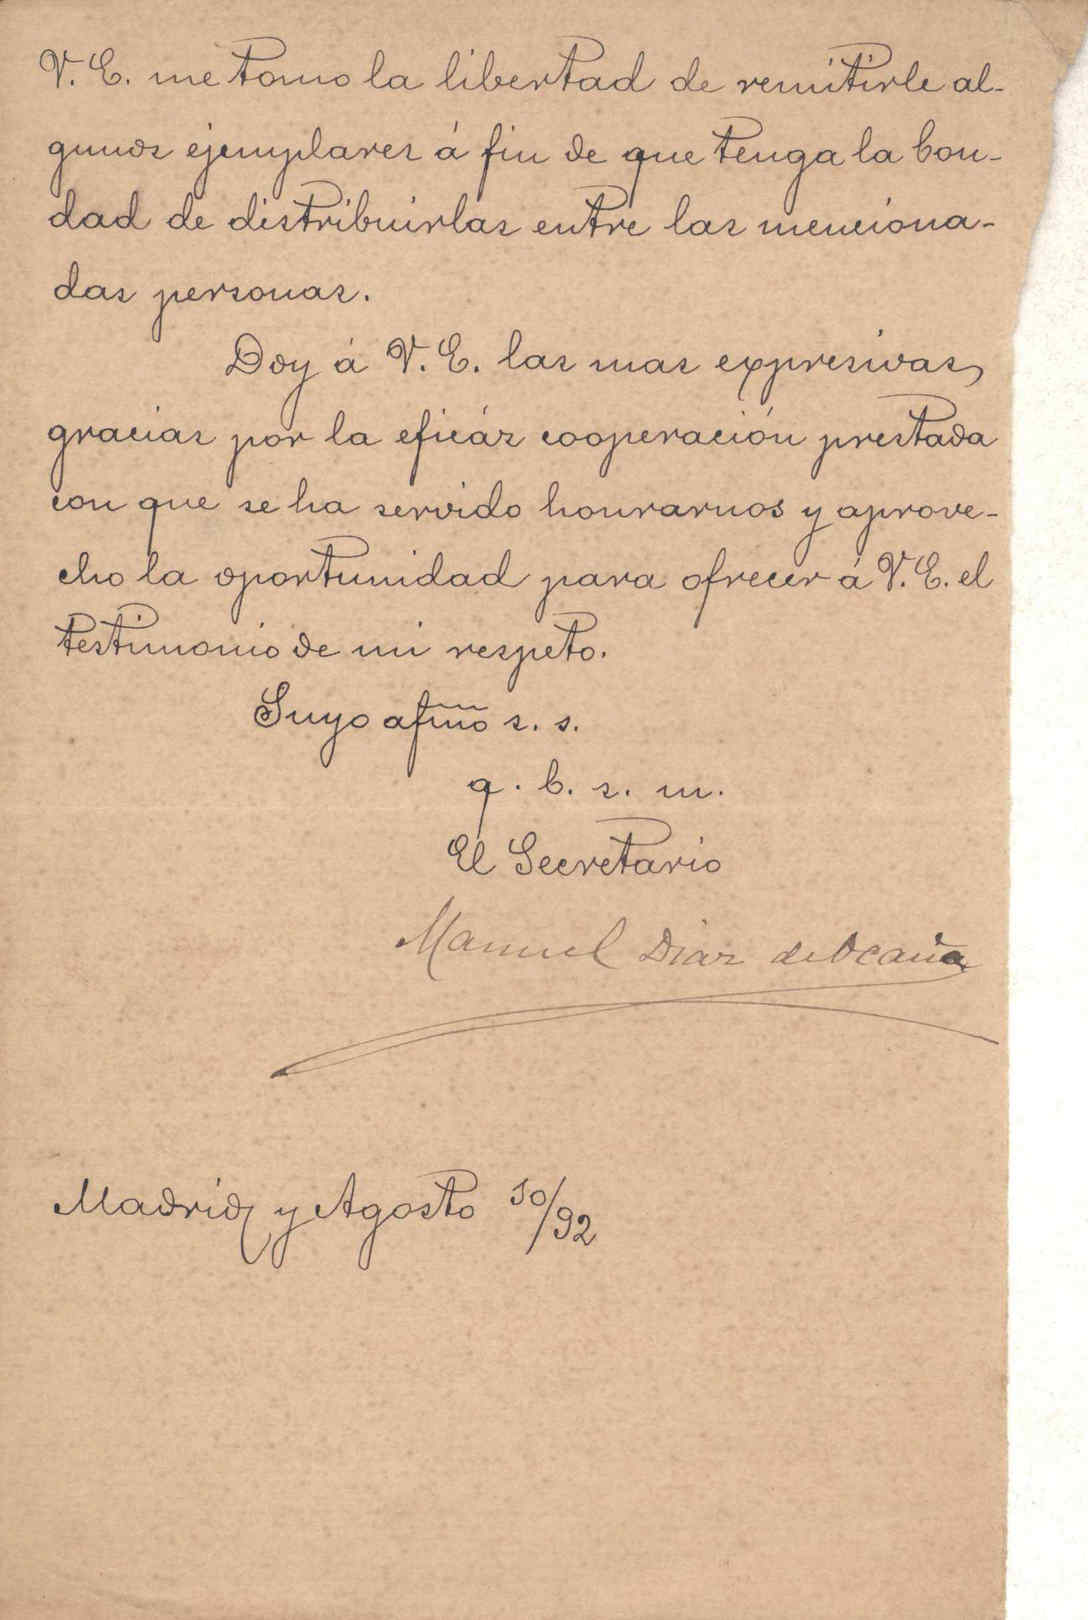 V. E. me tomo la libertad de remitirle al-
gunos ejemplares á fin de que tenga la bon-
dad de distribuirlas entre las menciona-
das personas.
Doy á V. E. las mas expresivas
gracias por la eficáz cooperación prestada
con que se ha servido honrarnos y aprove-
cho la oportunidad para ofrecer á V. E. el
testimonio de mi respeto.
Suyo afmo s. s.
q. b. s. m.
El Secretario
Manuel Diaz de Ocaña
Madrid y Agosto 30/92